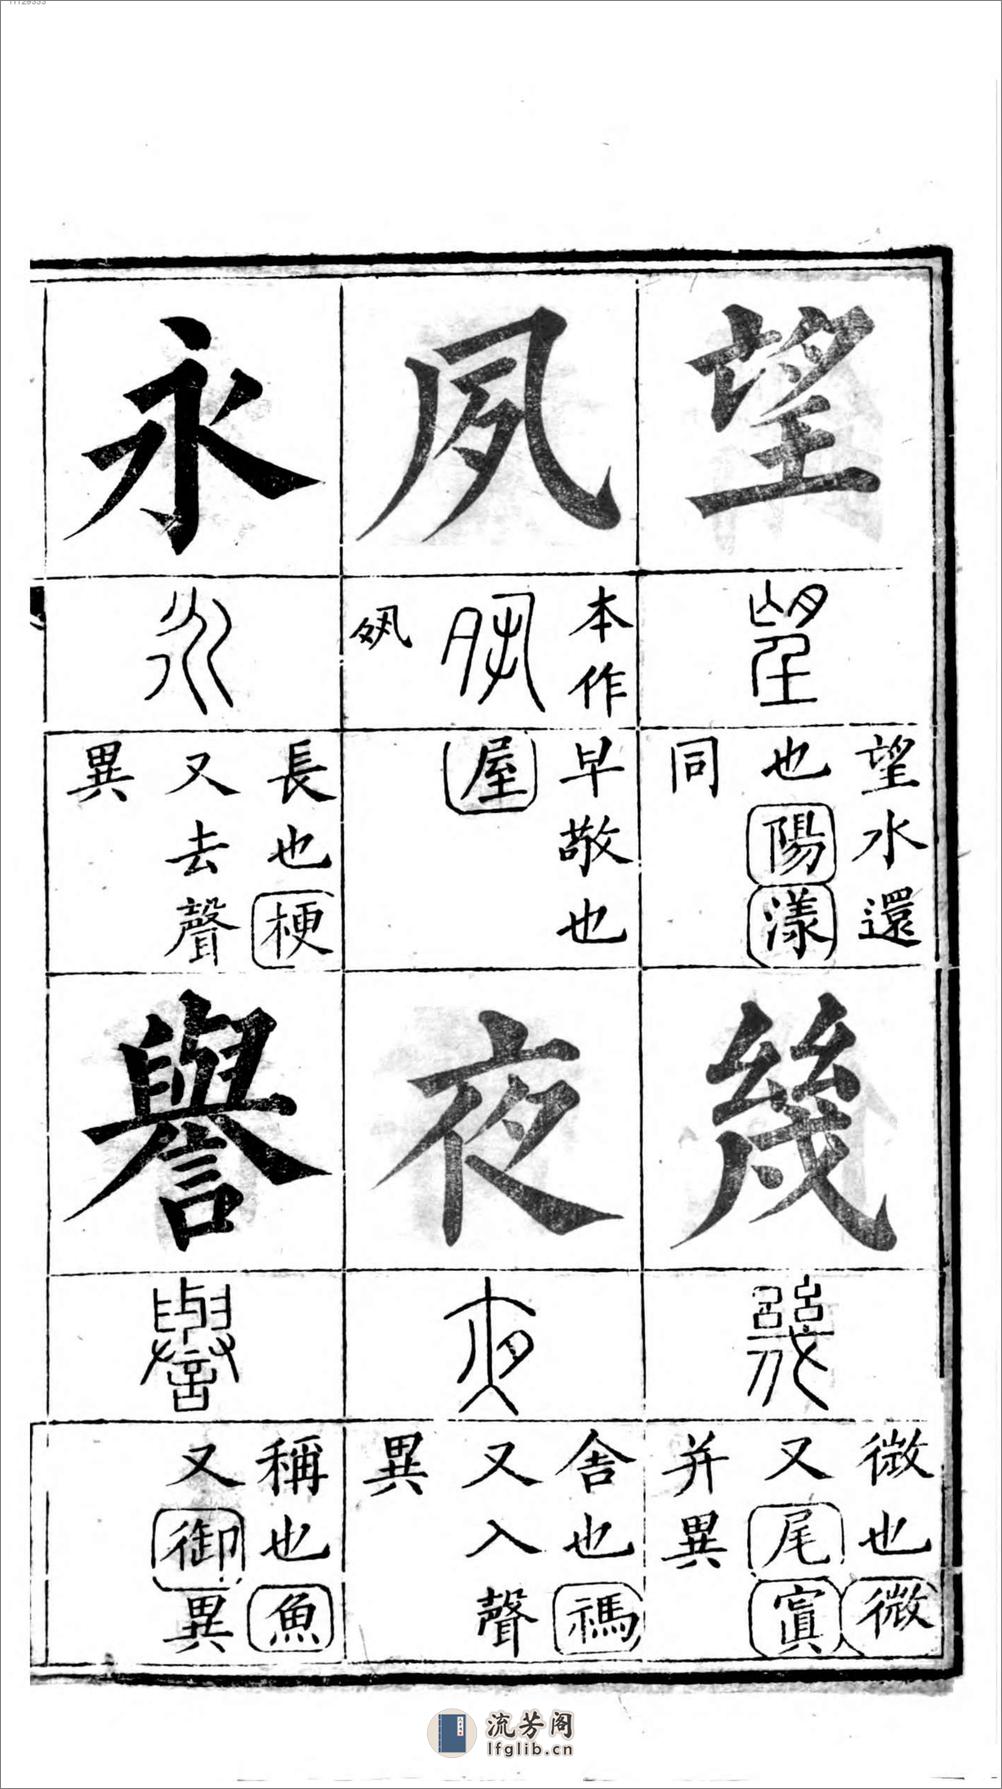 望
望水還
也陽漾
同
幾
微也微
又尾寘
并異
夙
本作
㚈
早敬也
屋
夜
舍也禡
又入聲
異
永
長也梗
又去聲
異
譽
稱也魚
又御異
流芳阁
lfglib.cn